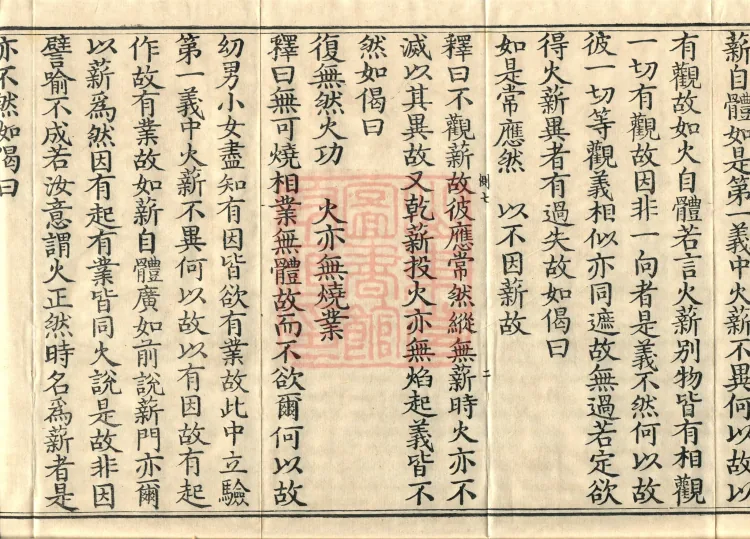 薪自體如是第一義中火薪不異何以故以
有觀故如火自體若言火薪別物皆有相觀
一切有觀故因非一向者是義不然何以故
彼一切等觀義相似亦同遮故無過若定欲
得火薪異者有過失故如偈曰
如是常應然　以不因薪故
惻七　二
釋曰不觀薪故彼應常然縱無薪時火亦不
滅以其異故又乾薪投火亦無焰起義皆不
然如偈曰
復無然火功　火亦無燒業
釋曰無可燒相業無體故而不欲爾何以故
幼男小女盡知有因皆欲有業故此中立驗
第一義中火薪不異何以故以有因故有起
作故有業故如薪自體廣如前說薪門亦爾
以薪為然因有起有業皆同火說是故非因
譬喻不成若汝意謂火正然時名為薪者是
亦不然如偈曰